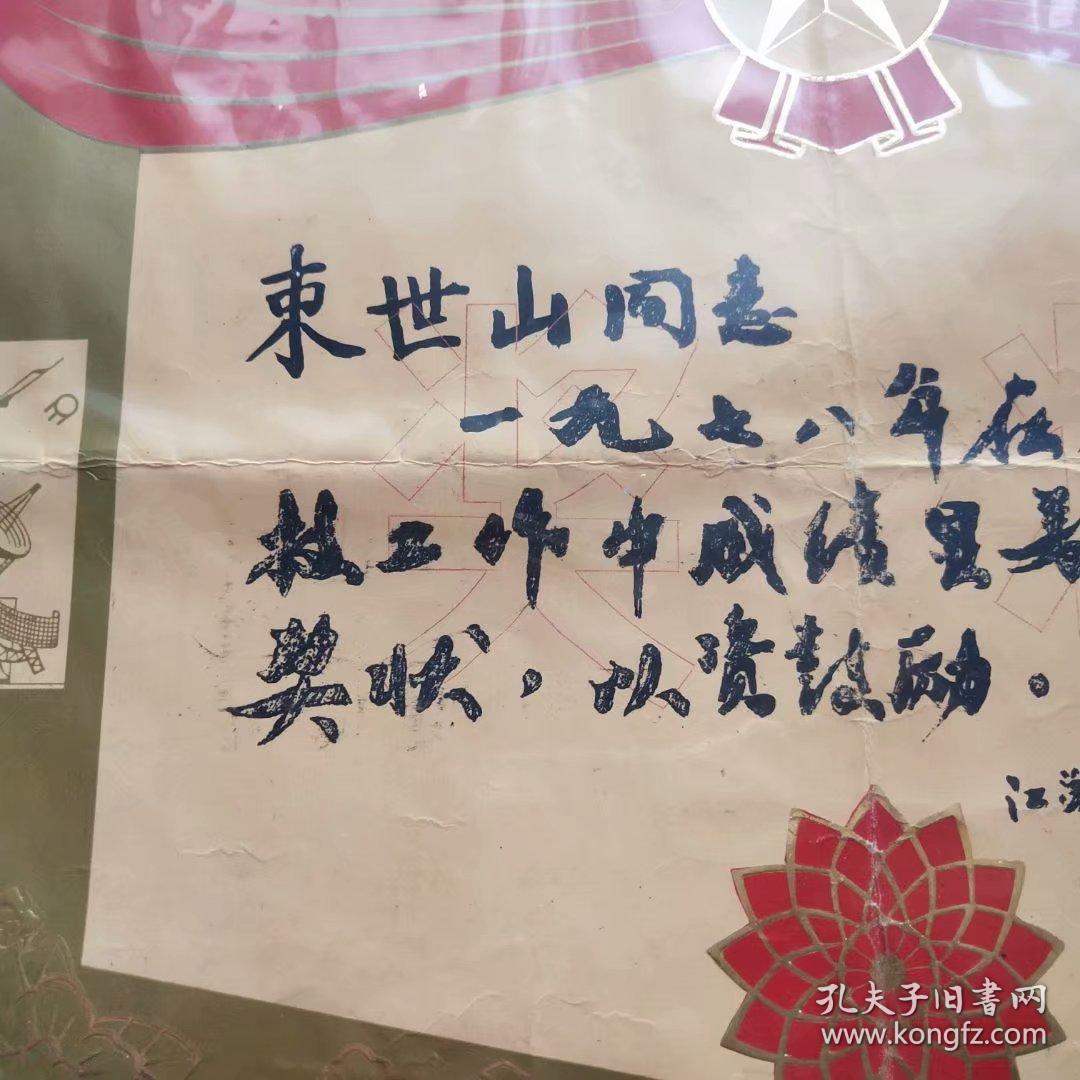 束世山同志
一九七八年在
技工作中成绩显著
奖状，以资鼓励。
江苏
孔夫子旧書网
www.kongfz.com